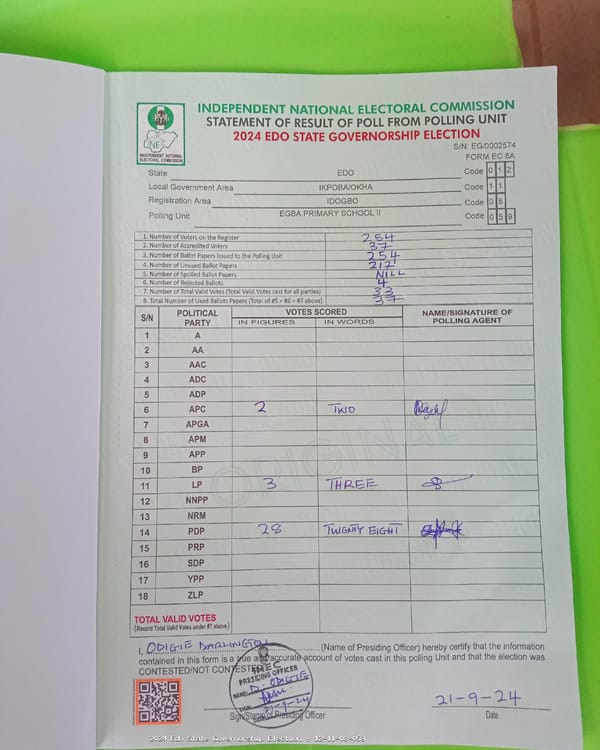 INDEPENDENT NATIONAL ELECTORAL COMMISSION
STATEMENT OF RESULT OF POLL FROM POLLING UNIT
2024 EDO STATE GOVERNORSHIP ELECTION
INEC
INDEPENDENT NATIONAL ELECTORAL COMMISSION
S/N: EG/0002574
FORM EC 8A
State EDO Code 0 1 2
Local Government Area IKPOBA/OKHA Code 1 1
Registration Area IDOGBO Code 0 8
Polling Unit EGBA PRIMARY SCHOOL II Code 0 5 9
1. Number of Voters on the Register 254
2. Number of Accredited Voters 37
3. Number of Ballot Papers Issued to the Polling Unit 254
4. Number of Unused Ballot Papers 217
5. Number of Spoiled Ballot Papers NILL
6. Number of Rejected Ballots 4
7. Number of Total Valid Votes (Total Valid Votes cast for all parties) 33
8. Total Number of Used Ballots Papers (Total of #5 + #6 + #7 above) 37
S/N POLITICAL PARTY VOTES SCORED NAME/SIGNATURE OF POLLING AGENT
IN FIGURES IN WORDS
1 A
2 AA
3 AAC
4 ADC
5 ADP
6 APC 2 TWO
7 APGA
8 APM
9 APP
10 BP
11 LP 3 THREE
12 NNPP
13 NRM
14 PDP 28 TWENTY EIGHT
15 PRP
16 SDP
17 YPP
18 ZLP
ORIGINAL
TOTAL VALID VOTES
(Record Total Valid Votes under #7 above)
I, ODIGIE DARLINGTON (Name of Presiding Officer) hereby certify that the information
contained in this form is a true and accurate account of votes cast in this polling Unit and that the election was
CONTESTED/NOT CONTESTED
INEC
PRESIDING OFFICER
NAME: D. ODIGIE
SIGN
21-9-24
Sign/Stamp of Presiding Officer
21-9-24
Date
2024 Edo State Governorship Election - 12-11-08-059